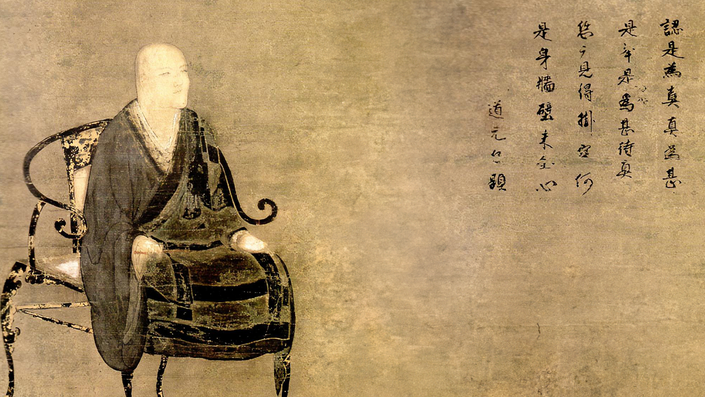 認是為真真為甚
是是為甚待真
見得掛空何
是身牆壁未全心
道元題